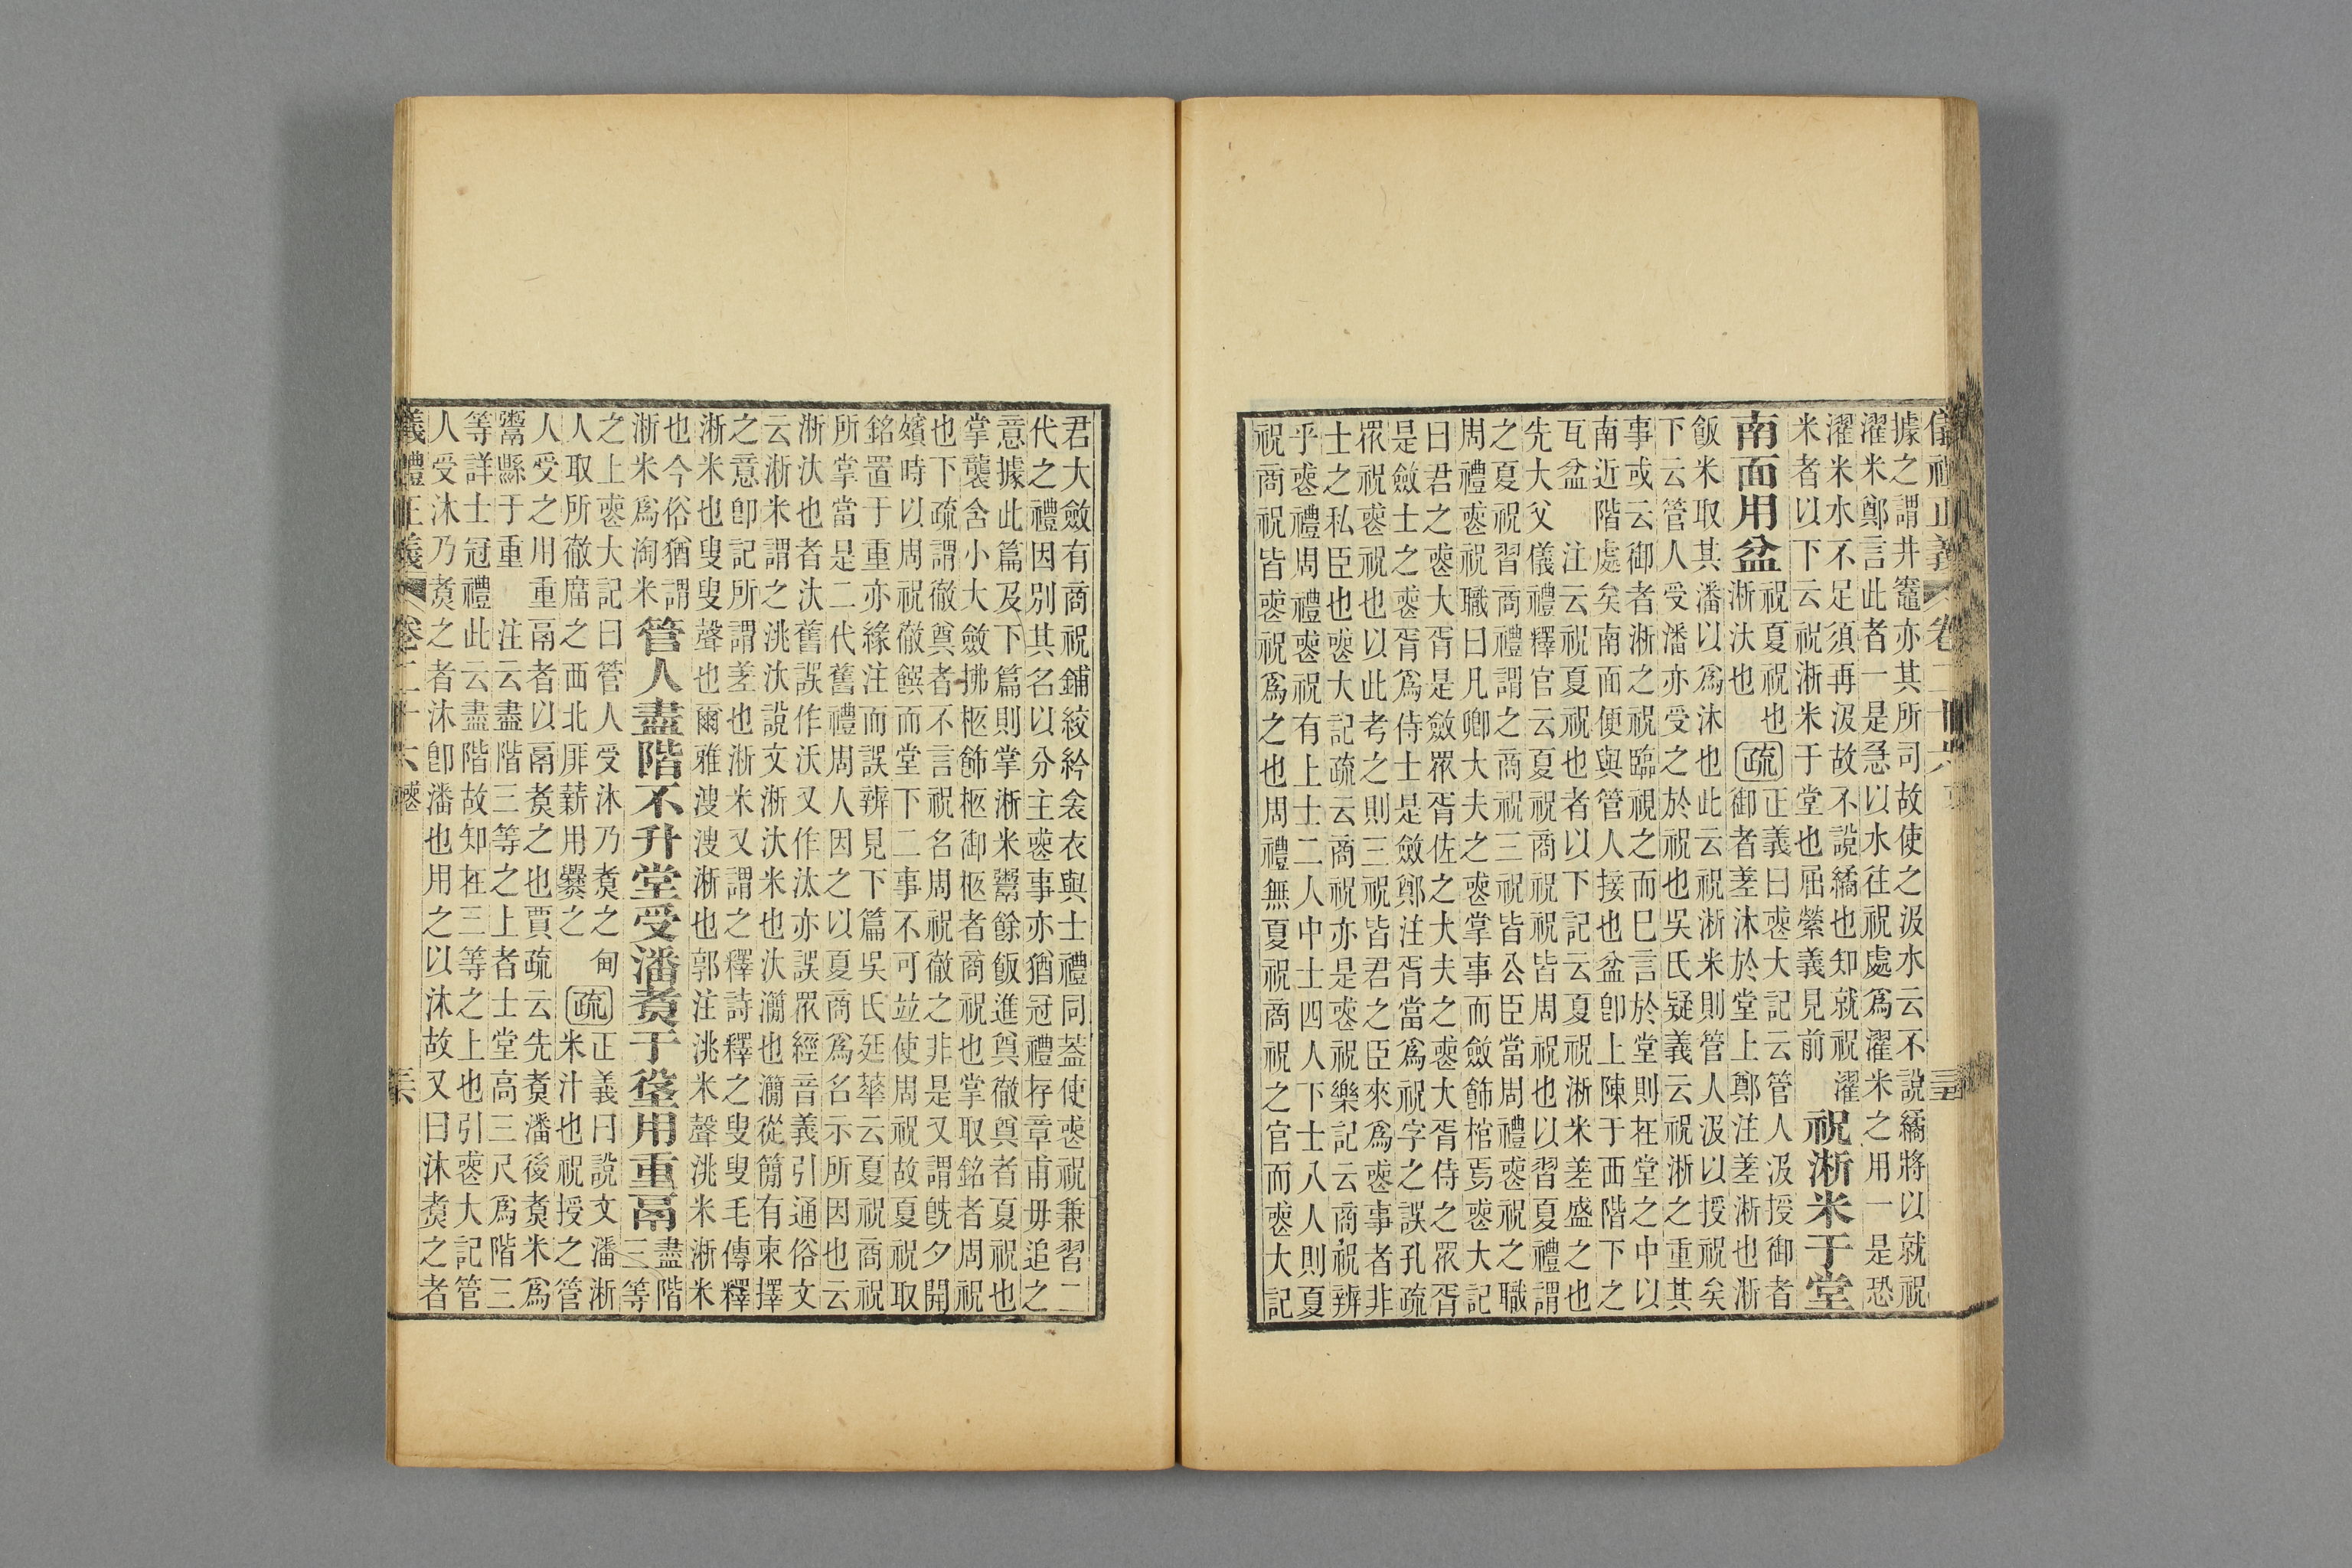 儀禮正義 卷二十六 喪 三五
據之謂井竈亦其所司故使之汲水云不說繘將以就祝
濯米鄭言此者一是急以水往祝處爲濯米之用一是恐
濯米水不足須再汲故不說繘也知就祝濯
米者以下云祝淅米于堂也屈縈義見前
祝淅米于堂
南面用盆
祝夏祝也
淅汏也
疏
正義曰喪大記云管人汲授御者
御者差沐於堂上鄭注差淅也淅
飯米取其潘以爲沐也此云祝淅米則管人汲以授祝矣
下云管人受潘亦受之於祝也吳氏疑義云祝淅之重其
事或云御者淅之祝臨視之而巳言於堂則在堂之中以
南近階處矣南面便與管人接也盆卽上陳于西階下之
瓦盆 注云祝夏祝也者以下記云夏祝淅米差盛之也
先大父 儀禮釋官云夏祝商祝祝皆周祝也以習夏禮謂
之夏祝習商禮謂之商祝三祝皆公臣當周禮喪祝之職
周禮喪祝職曰凡卿大夫之喪掌事而斂飾棺焉喪大記
曰君之喪大胥是斂眾胥佐之大夫之喪大胥侍之眾胥
是斂士之喪胥爲侍士是斂鄭注胥當爲祝字之誤孔疏
眾祝喪祝也以此考之則三祝皆君之臣來爲喪事者非
士之私臣也喪大記疏云商祝亦是喪祝樂記云商祝辨
乎喪禮周禮喪祝有上士二人中士四人下士八人則夏
祝商祝皆喪祝爲之也周禮無夏祝商祝之官而喪大記
君大斂有商祝鋪絞紟衾衣與士禮同蓋使喪祝兼習二
代之禮因別其名以分主喪事亦猶冠禮存章甫毋追之
意據此篇及下篇則掌淅米鬻餘飯進奠徹奠者夏祝也
掌襲含小大斂拂柩飾柩御柩者商祝也掌取銘者周祝
也下疏謂徹奠者不言祝名周祝徹之非是又謂旣夕開
殯時以周祝徹饌而堂下二事不可竝使周祝故夏祝取
銘置于重亦緣注而誤辨見下篇吳氏廷華云夏祝商祝
所掌當是二代舊禮周人因之以夏商爲名示所因也云
淅汏也者汏舊誤作沃又作汰亦誤眾經音義引通俗文
云淅米謂之洮汏說文淅汏米也汏灡也灡從簡有柬擇
之意卽記所謂差也淅米又謂之釋詩釋之叟叟毛傳釋
淅米也叟叟聲也爾雅溞溞淅也郭注洮米聲洮米淅米
也今俗猶謂
淅米爲淘米
管人盡階不升堂受潘煑于垼用重鬲
盡階
三等
之上喪大記曰管人受沐乃煑之甸
人取所徹廟之西北厞薪用爨之
疏
正義曰說文潘淅
米汁也祝授之管
人受之用重鬲者以鬲煑之也賈疏云先煑潘後煑米爲
鬻縣于重 注云盡階三等之上者士堂高三尺爲階三
等詳士冠禮此云盡階故知在三等之上也引喪大記管
人受沐乃煑之者沐卽潘也用之以沐故又曰沐煑之者
儀禮正義 卷二十六 喪 三六